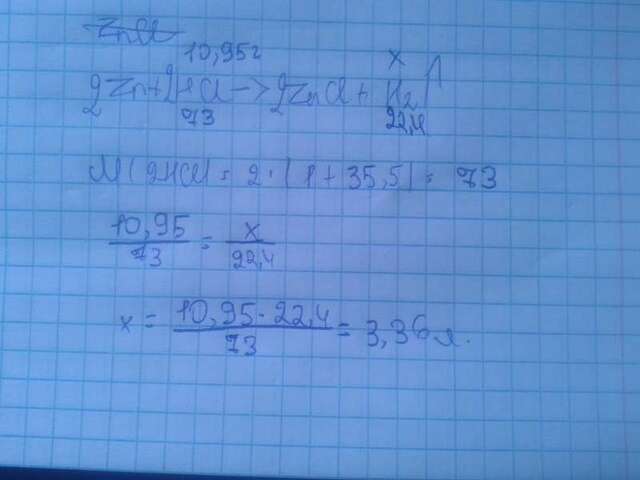 ZnCl
10,95г x
2Zn+2HCl->2ZnCl+H₂↑
73 22,4
M(2HCl)=2·(1+35,5)=73
10,95/73=x/22,4
x=10,95·22,4/73=3,36л.